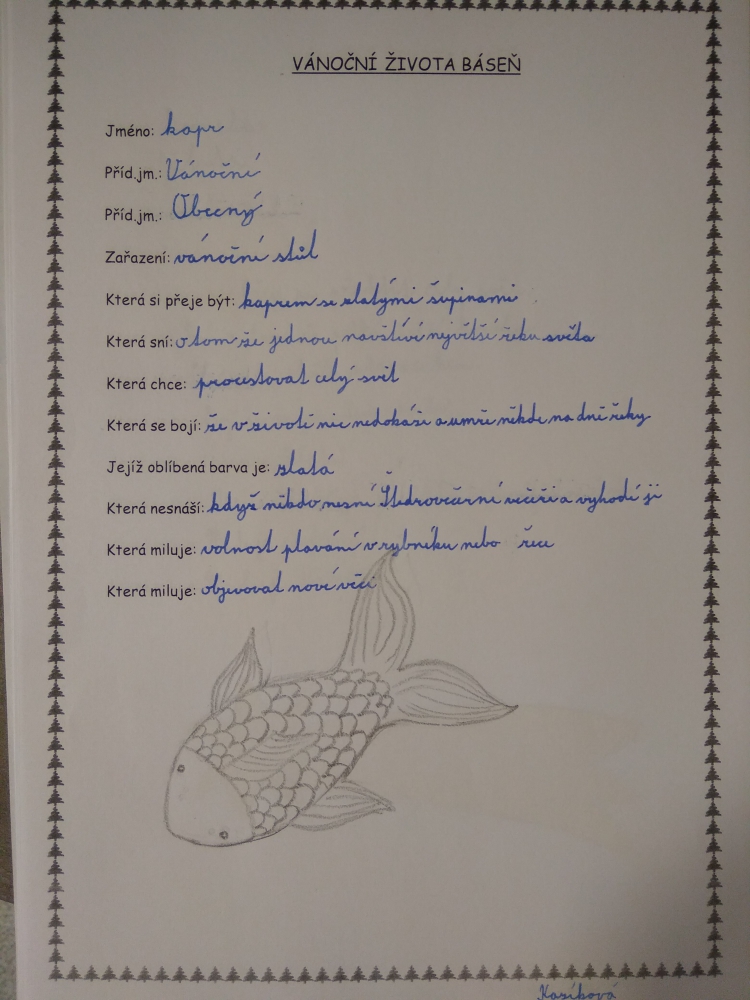 VÁNOČNÍ ŽIVOTA BÁSEŇ
Jméno: kapr
Příd.jm.: Vánoční
Příd.jm.: Obecný
Zařazení: vánoční stůl
Která si přeje být: kaprem se zlatými šupinami
Která sní: o tom že jednou navštíví největší řeku světa
Která chce: procestovat celý svět
Která se bojí: že v životě nic nedokáži a umře někde na dně řeky
Jejíž oblíbená barva je: zlatá
Která nesnáší: když někdo nesní Štedrovčerní večeři a vyhodí ji
Která miluje: volnost plavání v rybníku nebo řece
Která miluje: objevovat nové věci
Kozíková